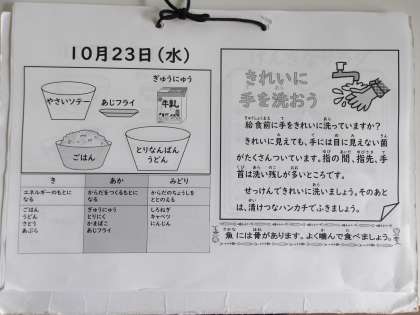 10月23日(水)
ぎゅうにゅう
牛乳
やさいソテー
あじフライ
ごはん
とりなんばん
うどん
き
あか
みどり
エネルギーのもとに
なる
からだをつくるもとに
なる
からだのちょうしを
ととのえる
ごはん
うどん
さとう
あぶら
ぎゅうにゅう
とりにく
かまぼこ
あじフライ
しろねぎ
キャベツ
にんじん
きれいに
手を洗おう
給食前に手をきれいに洗っていますか?
きれいに見えても、手には目に見えない菌
がたくさんついています。指の間、指先、手
首は洗い残しが多いところです。
せっけんできれいに洗いましょう。そのあと
は、清けつなハンカチでふきましょう。
魚には骨があります。よく噛んで食べましょう。